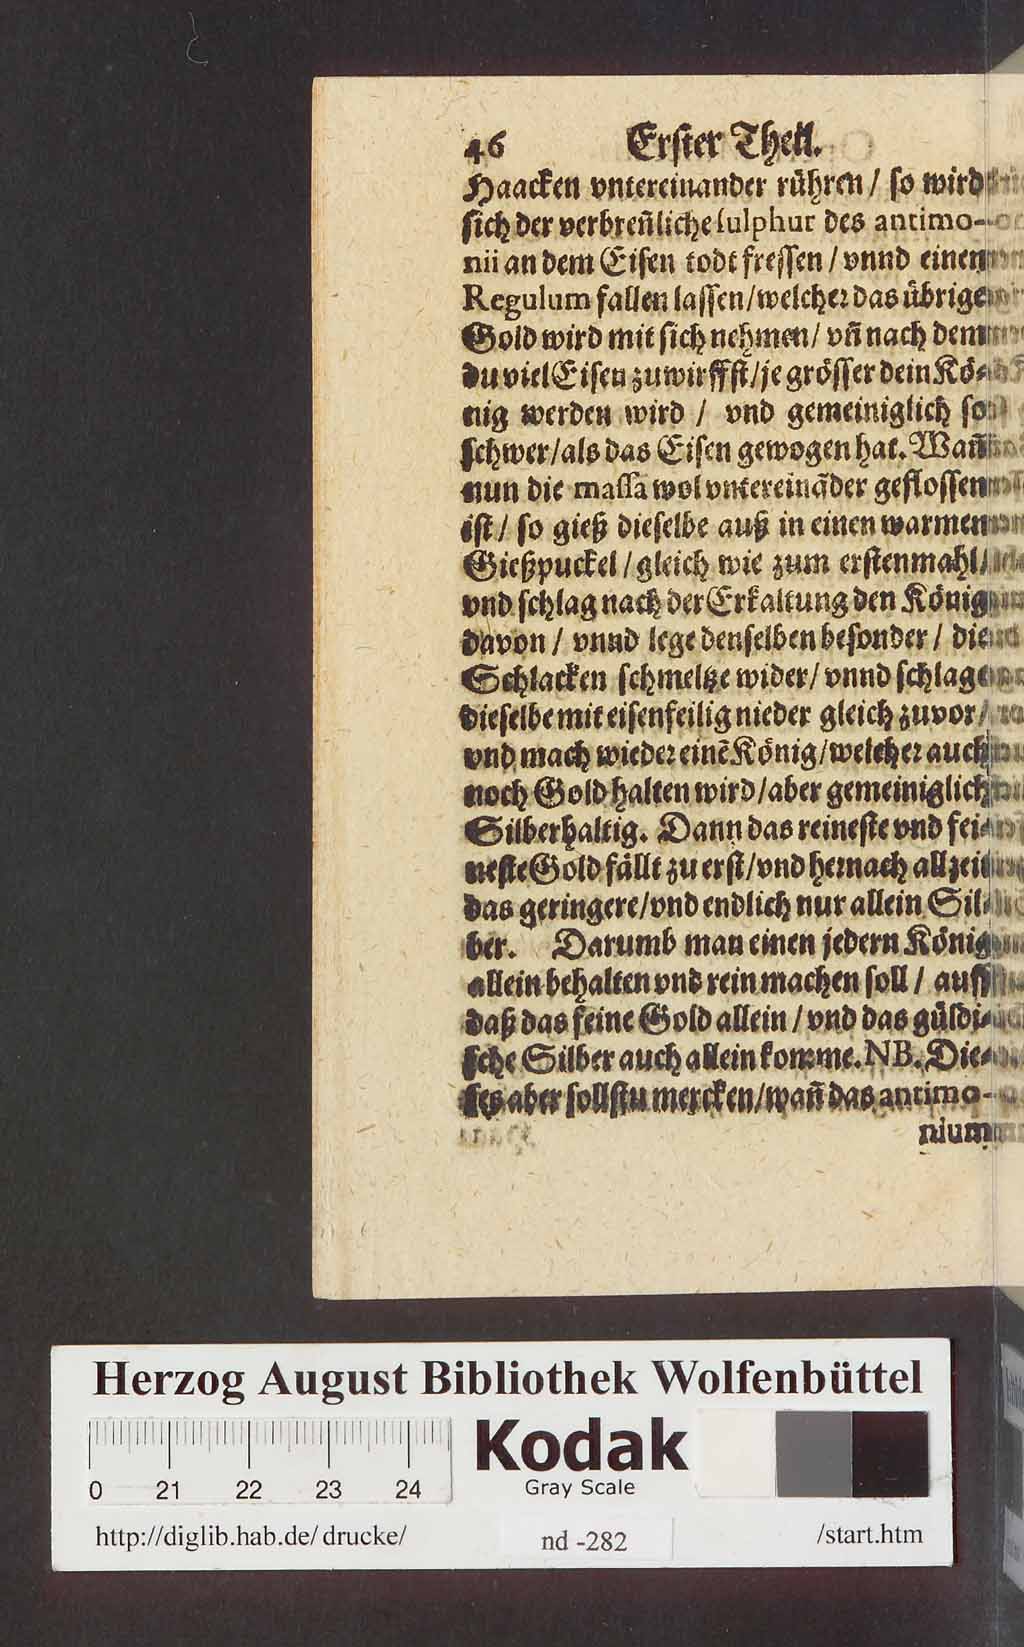 46 Erſter Theil.
Haacken vntereinander rühren / ſo wird
ſich der verbreñliche ſulphur des antimo-
nii an dem Eiſen todt freſſen / vnnd einen
Regulum fallen laſſen/welcher das übrige
Gold wird mit ſich nehmen/ vñ nach dem
du viel Eiſen zuwirffſt/je gröſſer dein Kö-
nig werden wird / vnd gemeiniglich ſo
ſchwer/als das Eiſen gewogen hat. Wañ
nun die maſſa wol vntereinãder gefloſſen
iſt/ ſo gieß dieſelbe auß in einen warmen
Gießpuckel / gleich wie zum erſtenmahl/
vnd ſchlag nach der Erkaltung den König
davon / vnnd lege denſelben beſonder / die
Schlacken ſchmeltze wider/ vnnd ſchlage
dieſelbe mit eiſenfeilig nieder gleich zuvor/
vnd mach wieder einẽ König/welcher auch
noch Gold halten wird/aber gemeiniglich
Silberhaltig. Dann das reineſte vnd fei-
neſte Gold fällt zu erſt/vnd hernach allzeit
das geringere/vnd endlich nur allein Sil-
ber. Darumb man einen jedern König
allein behalten vnd rein machen ſoll / auff
daß das feine Gold allein / vnd das güldi-
ſche Silber auch allein komme. NB. Die-
ſes aber ſollſtu mercken/wañ das antimo-
nium
Herzog August Bibliothek Wolfenbüttel
0 21 22 23 24
Kodak
Gray Scale
http://diglib.hab.de/drucke/ nd -282 /start.htm